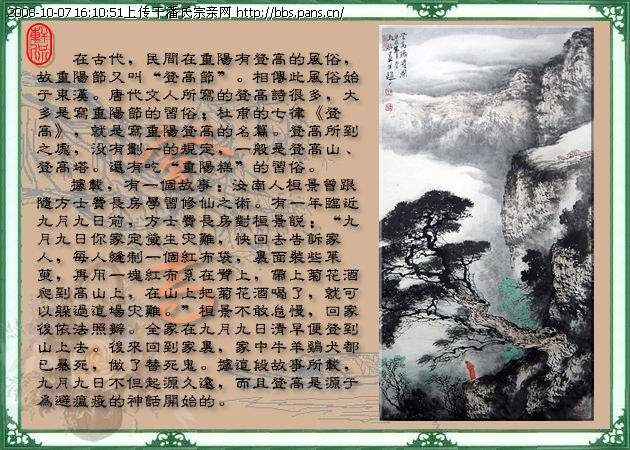 2008-10-07 16:10:51上传于潘氏宗亲网 http://bbs.pans.cn/
在古代，民間在重陽有登高的風俗，
故重陽節又叫“登高節”。相傳此風俗始
于東漢。唐代文人所寫的登高詩很多，大
多是寫重陽節的習俗；杜甫的七律《登
高》，就是寫重陽登高的名篇。登高所到
之處，没有劃一的規定，一般是登高山、
登高塔。還有吃“重陽糕”的習俗。
據載，有一個故事：汝南人桓景曾跟
隨方士費長房學習修仙之術。有一年臨近
九月九日前，方士費長房對桓景説：“九
月九日你家定發生灾難，快回去告訴家
人，每人縫制一個紅布袋，裏面裝些茱
萸，再用一塊紅布系在臂上，帶上菊花酒
爬到高山上，在山上把菊花酒喝了，就可
以躲過這場灾難。”桓景不敢怠慢，回家
後依法照辦。全家在九月九日清早便登到
山上去。後來回到家裏，家中牛羊鷄犬都
已暴死，做了替死鬼。據這段故事所載，
九月九日不但起源久遠，而且登高是源于
爲避瘟疫的神話開始的。